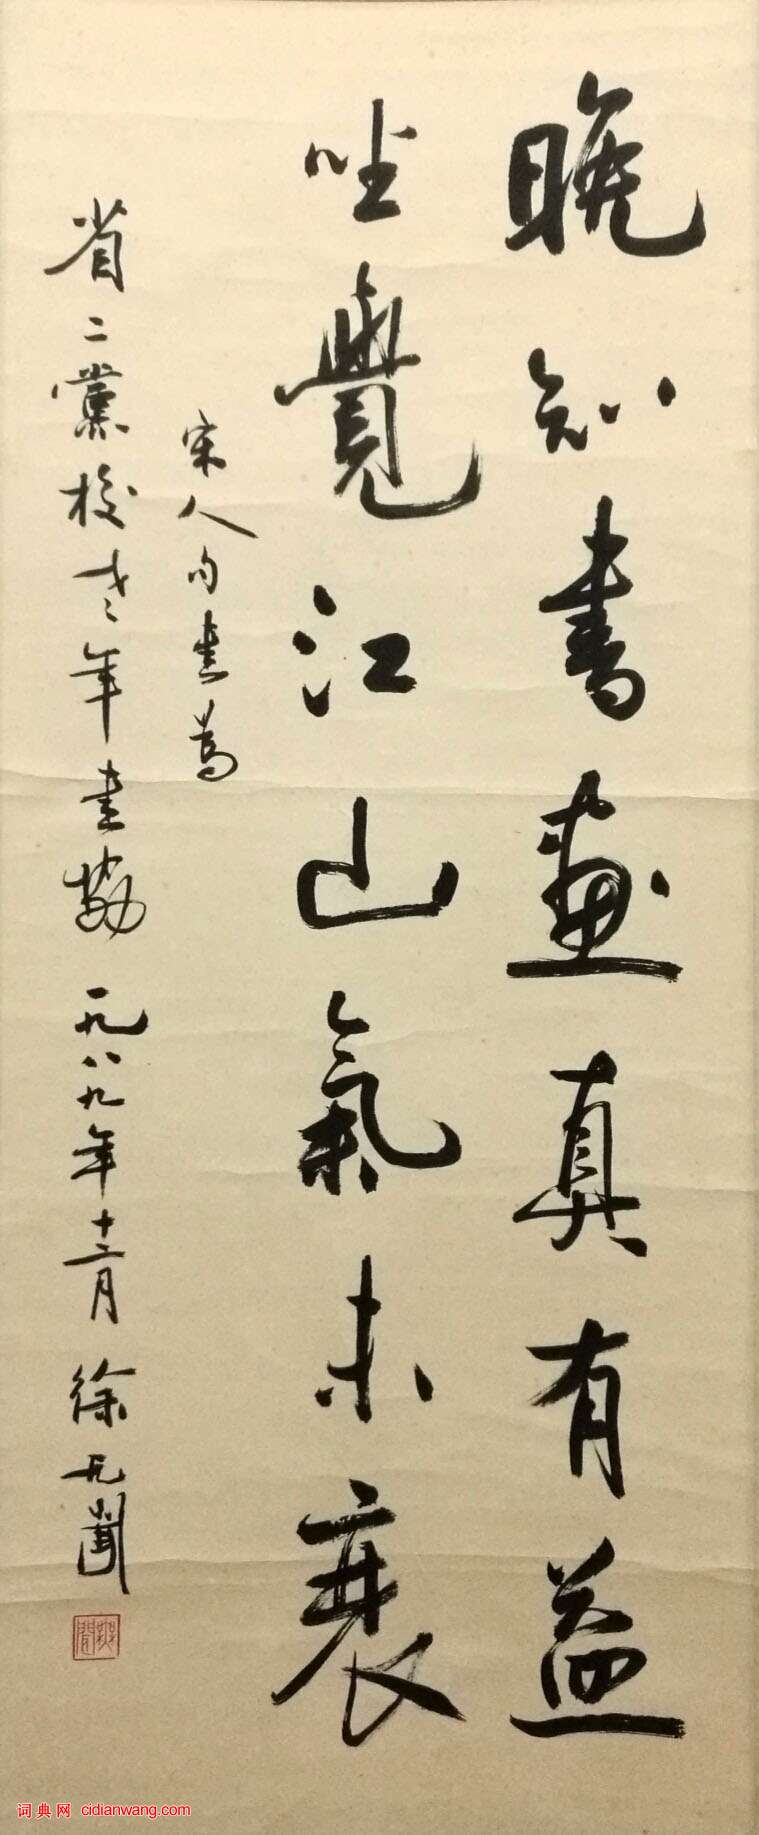 晚知書畫真有益
坐覺江山氣未衰
宋人句書為
省二黨校老年書協 一九八九年十二月 徐無聞
無聞
词典网 cidianwang.com